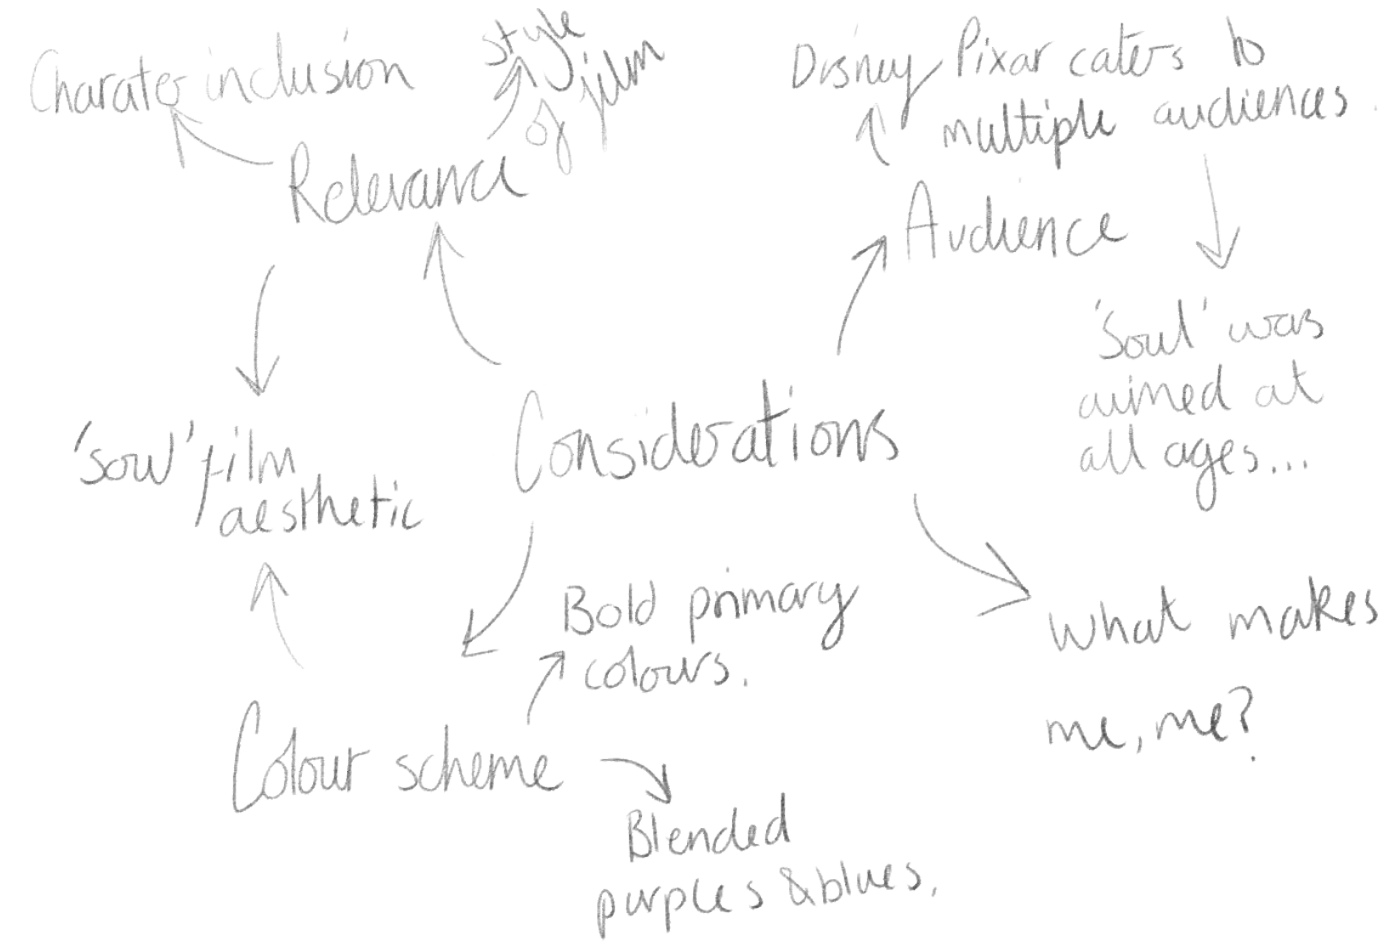 Charater inclusion
style
of film
Relevance
Disney Pixar caters to
multiple audiences.
Audience
'Soul' was
aimed at
all ages...
'soul' film
aesthetic
Considerations
Bold primary
colours.
What makes
me, me?
Colour scheme
Blended
purples & blues.